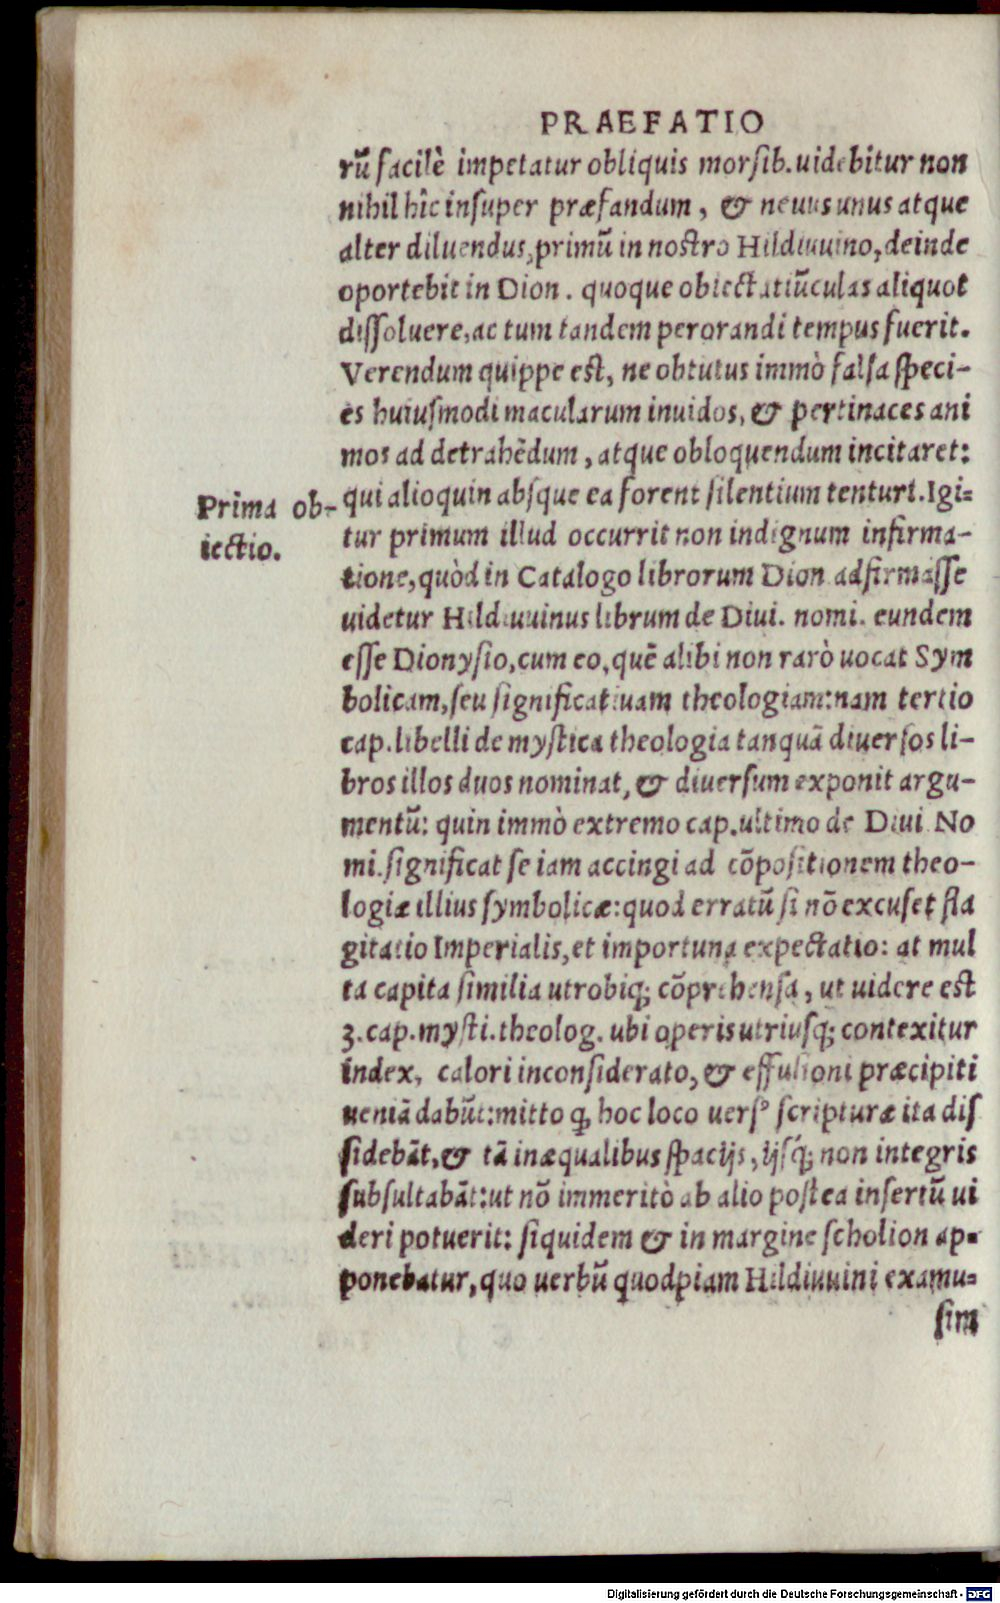 PRAEFATIO
rũ facilè impetatur obliquis morſib. uidebitur non
nihil hîc inſuper præfandum, & neuus unus atque
alter diluendus, primũ in noſtro Hilduuino, deinde
oportebit in Dion. quoque obiectatiũculas aliquot
diſſoluere, ac tum tandem perorandi tempus fuerit.
Verendum quippe eſt, ne obtutus immò falſa ſpeci-
es huiuſmodi macularum inuidos, & pertinaces ani
mos ad detrahẽdum, atque obloquendum incitaret:
qui alioquin abſque ea forent ſilentium tenturi. Igi=
Prima ob-
iectio.
tur primum illud occurrit non indignum infirma-
tione, quòd in Catalogo librorum Dion adfirmaſſe
uidetur Hilduuinus librum de Diui. nomi. eundem
eſſe Dionyſio, cum eo, quẽ alibi non rarò uocat Sym
bolicam, ſeu ſignificatiuam theologiam: nam tertio
cap. libelli de myſtica theologia tanquã diuerſos li-
bros illos duos nominat, & diuerſum exponit argu-
mentũ: quin immò extremo cap. ultimo de Diui No
mi. ſignificat ſe iam accingi ad cõpoſitionem theo-
logiæ illius ſymbolicæ: quod erratũ ſi nõ excuſet fla
gitatio Imperialis, et importuna expectatio: at mul
ta capita ſimilia utrobiq; cõprehenſa, ut uidere eſt
3. cap. myſti. theolog. ubi operis utriuſq; contexitur
index, calori inconſiderato, & effuſioni præcipiti
ueniã dabũt: mitto ꝙ hoc loco uerſꝰ ſcripturæ ita diſ
ſidebãt, & tã inæqualibus ſpacijs, ijſq́; non integris
ſubſultabãt: ut nõ immeritò ab alio poſtea inſertũ ui
deri potuerit: ſiquidem & in margine ſcholion ap=
ponebatur, quo uerbũ quodpiam Hilduuini examu=
ſim
Digitalisierung gefördert durch die Deutsche Forschungsgemeinschaft - DFG